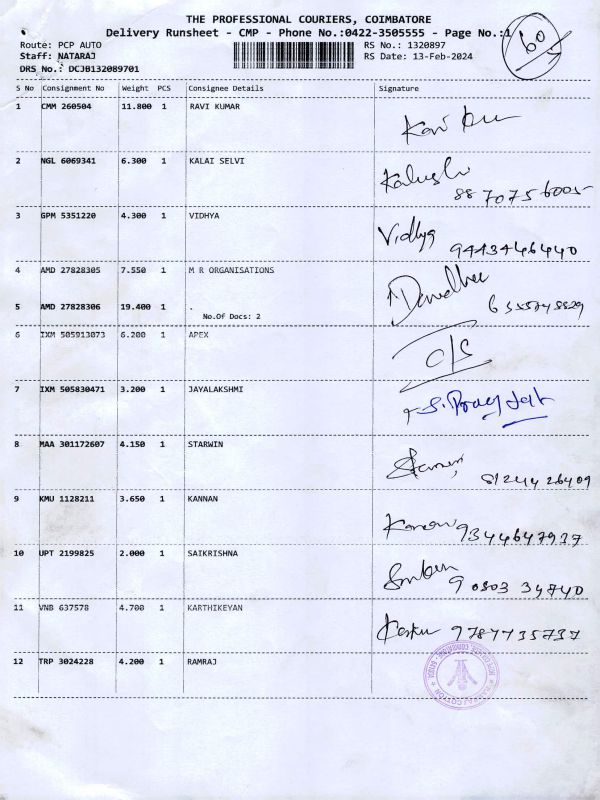 THE PROFESSIONAL COURIERS, COIMBATORE
Delivery Runsheet - CMP - Phone No.:0422-3505555 - Page No.:1
60
Route: PCP AUTO RS No.: 1320897
Staff: NATARAJ RS Date: 13-Feb-2024
DRS No.: DCJB132089701
S No Consignment No Weight PCS Consignee Details Signature
1 CMM 260504 11.800 1 RAVI KUMAR
2 NGL 6069341 6.300 1 KALAI SELVI
8870756005
3 GPM 5351220 4.300 1 VIDHYA Vidhya
9443446440
4 AMD 27828305 7.550 1 M R ORGANISATIONS
5 AMD 27828306 19.400 1 .
No.Of Docs: 2
6 IXM 505913073 6.200 1 APEX
O/S
7 IXM 505830471 3.200 1 JAYALAKSHMI
8 MAA 301172607 4.150 1 STARWIN
8124426409
9 KMU 1128211 3.650 1 KANNAN
9344647937
10 UPT 2199825 2.000 1 SAIKRISHNA
90803 34740
11 VNB 637578 4.700 1 KARTHIKEYAN
9787735737
12 TRP 3024228 4.200 1 RAMRAJ